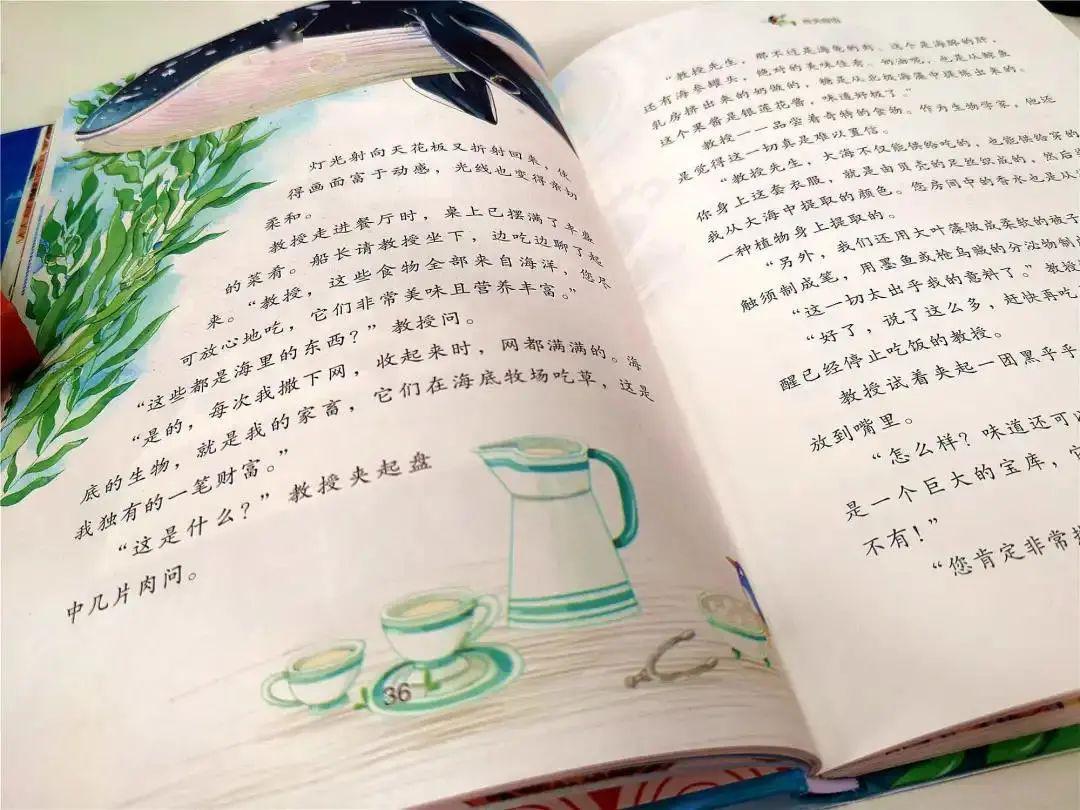 灯光射向天花板又折射回来，使
得画面富于动感，光线也变得亲切
柔和。
教授走进餐厅时，桌上已摆满了丰盛
的菜肴。船长请教授坐下，边吃边聊了起
来。“教授，这些食物全部来自海洋，您尽
可放心地吃，它们非常美味且营养丰富。”
“这些都是海里的东西？”教授问。
“是的，每次我撒下网，收起来时，网都满满的。海
底的生物，就是我的家畜，它们在海底牧场吃草，这是
我独有的一笔财富。”
“这是什么？”教授夹起盘
中几片肉问。
36
“教授先生，那不过是海龟的肉。这个是海豚的肝，
还有海参罐头，绝对的美味佳肴。奶油呢，也是从鲸鱼
乳房挤出来的奶做的，糖是从北极海藻中提炼出来的。
这个果酱是银莲花酱，味道好极了。”
教授一一品尝着奇特的食物。作为生物学家，他还
是觉得这一切真是难以置信。
“教授先生，大海不仅能供给吃的，也能供给穿的
你身上这套衣服，就是由贝壳的足丝织成的，然后
我从大海中提取的颜色。您房间中的香水也是从
一种植物身上提取的。
“另外，我们还用大叶藻做成柔软的被子
触须制成笔，用墨鱼或枪乌贼的分泌物制
“这一切太出乎我的意料了。”教授
“好了，说了这么多，赶快再吃
醒已经停止吃饭的教授。
教授试着夹起一团黑乎乎
放到嘴里。
“怎么样？味道还可
是一个巨大的宝库，
不有！”
“您肯定非常